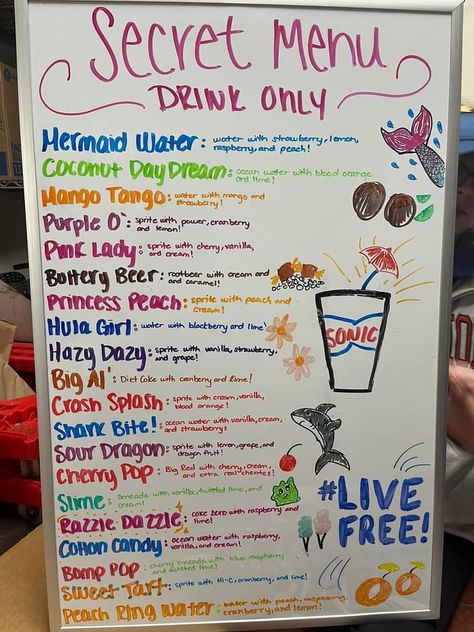 Secret Menu
DRINK ONLY
Mermaid Water: water with strawberry, lemon,
raspberry, and peach!
Coconut Day Dream: ocean water with blood orange
and lime!
Mango Tango: water with mango and
strawberry!
Purple O: sprite with power, cranberry
and lemon!
Pink Lady: sprite with cherry, vanilla,
and cream!
Buttery Beer: rootbeer with cream and
and caramel!
Princess Peach: sprite with peach and
cream!
Hula Girl: water with blackberry and lime
Hazy Dazy: sprite with vanilla, strawberry,
and grape!
Big Al': Diet Coke with cranberry and lime!
Crash Splash: sprite with cream, vanilla,
blood orange!
Shark Bite!: ocean water with vanilla, cream,
and strawberry!
Sour Dragon: sprite with lemon, grape, and
dragon fruit!
Cherry Pop: Big Red with cherry, cream,
and extra real cherries!
Slime: limeade with vanilla, twisted lime, and
cream!
Razzle Dazzle: coke zero with raspberry and
lime!
Cotton Candy: ocean water with raspberry,
vanilla, and cream!
Bomp Pop: cherry limeade with blue raspberry
and twisted lime!
Sweet Tart: sprite with Hi-C, cranberry, and lime!
Peach Ring Water: water with peach, raspberry,
cranberry, and lemon!
SONIC
#LIVE
FREE!